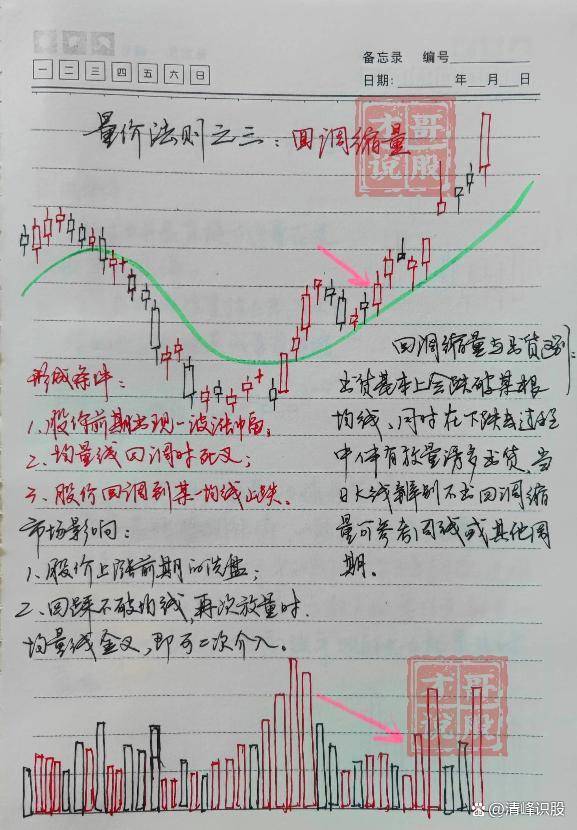 备忘录 编号
一 二 三 四 五 六 日
日期: 年 月 日
量价法则之三：回调缩量
才哥
说股
回调缩量与出货区别：
形成条件：
出货基本上会跌破某根
1、股价前期出现一波涨幅；
均线、同时在下跌过程
2、均量线回调时死叉；
中伴有放量诱多出货、当
3、股价回调到某一均线止跌。
日K线辨别不出回调缩
市场影响：
量可参考周线或其他周
1、股价上涨前期的洗盘；
期。
2、回踩不破均线，再次放量时
均量线金叉，即可二次介入。
才哥
说股
清峰识股